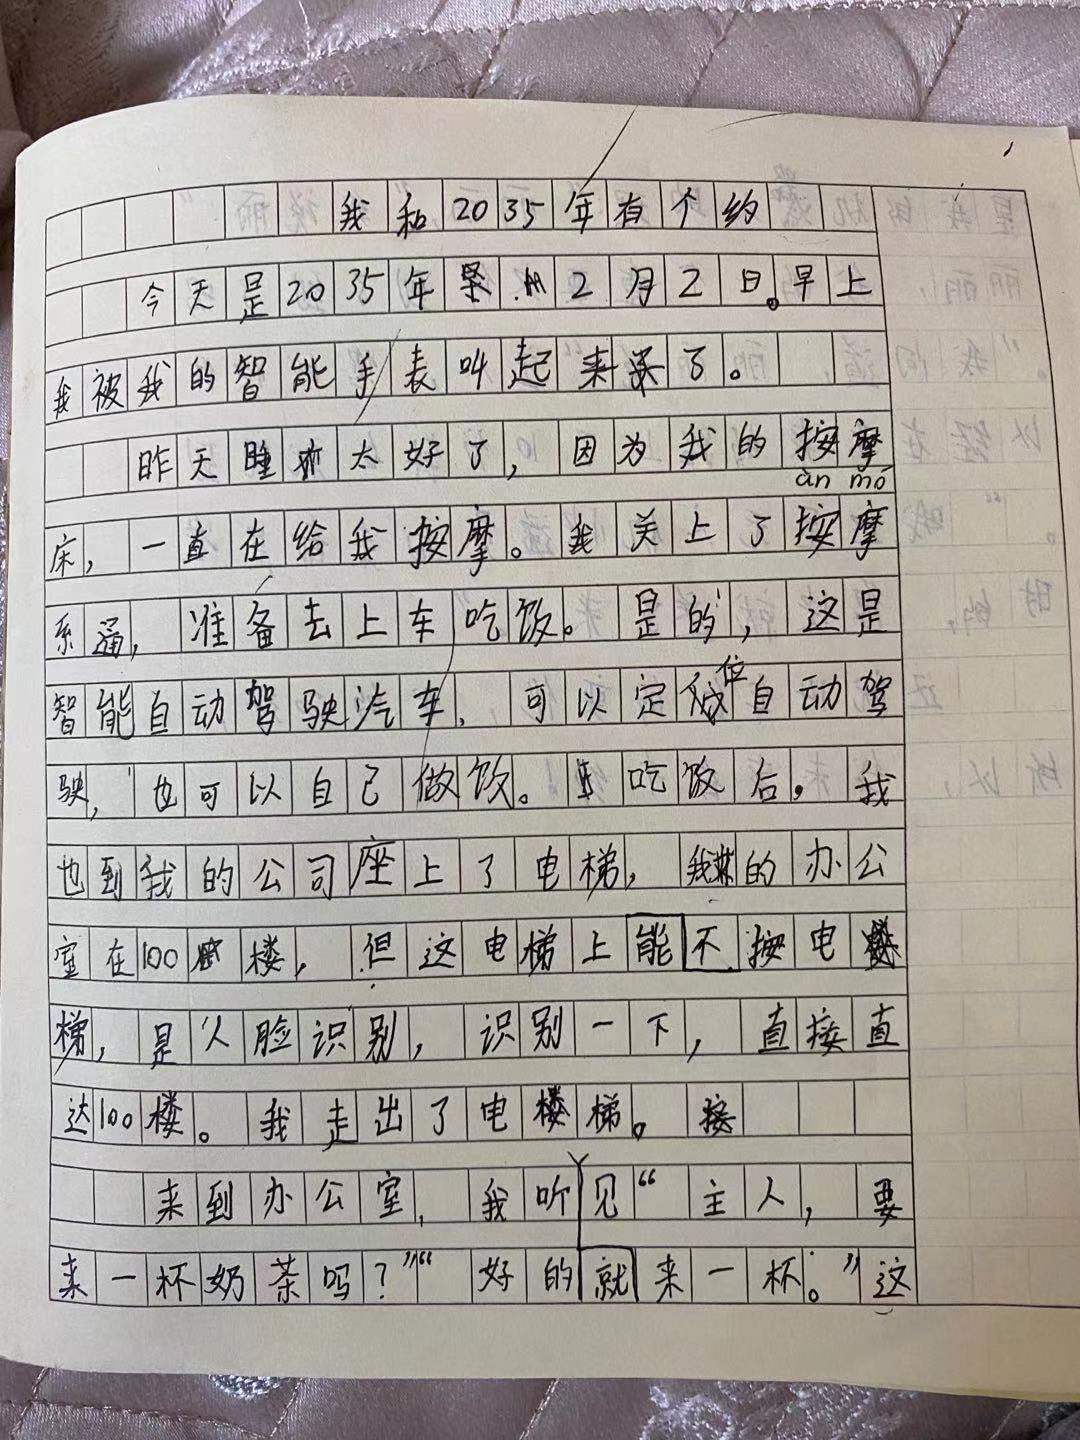 我和2035年有个约
今天是2035年2月2日。早上
我被我的智能手表叫起来了。
昨天睡太好了，因为我的按摩
àn mó
床，一直在给我按摩。我关上了按摩
系通，准备去上车吃饭。是的，这是
智能自动驾驶汽车，可以定位自动驾
驶，也可以自己做饭。吃饭后，我
也到我的公司座上了电梯，我的办公
室在100楼，但这电梯上能不按电
梯，是人脸识别，识别一下，直接直
达100楼。我走出了电梯。接
来到办公室，我听见“主人，要
来一杯奶茶吗？”“好的就来一杯。”这